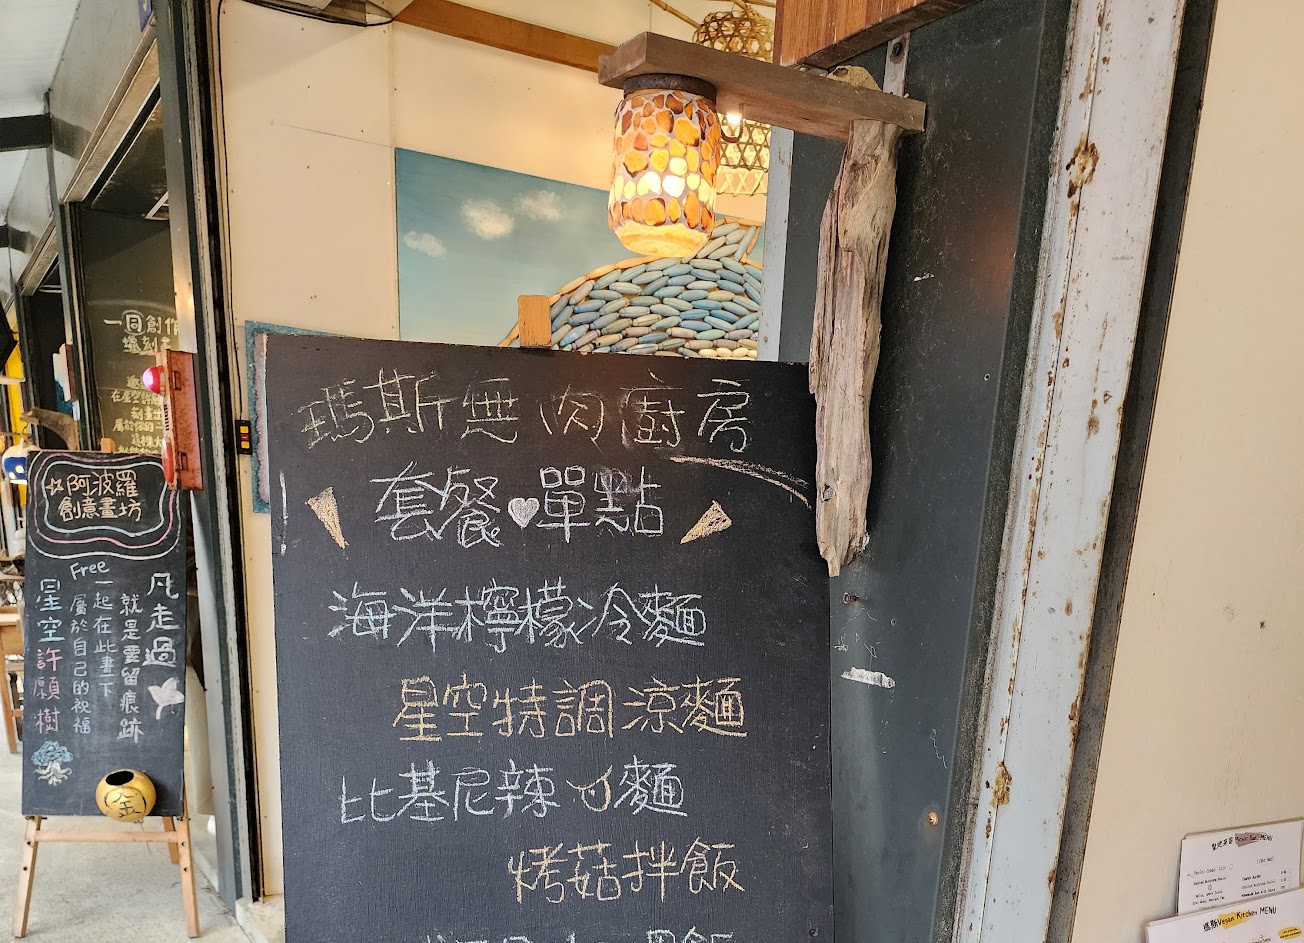 瑪斯無肉廚房
套餐♥單點
海洋檸檬冷麵
星空特調涼麵
比基尼辣麵
烤菇拌飯
☆阿波羅
創意畫坊
Free
凡走過
就是要留痕跡
一起在此畫下
屬於自己的祝福
星空許願樹
金
一同創作
在星空許願
刻畫
屬於你的一
MENU
瑪斯Vegan Kitchen MENU